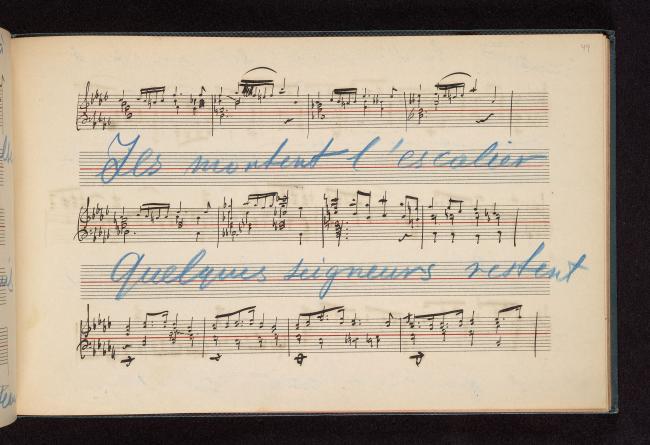 44
Ils montent l'escalier
Quelques seigneurs restent